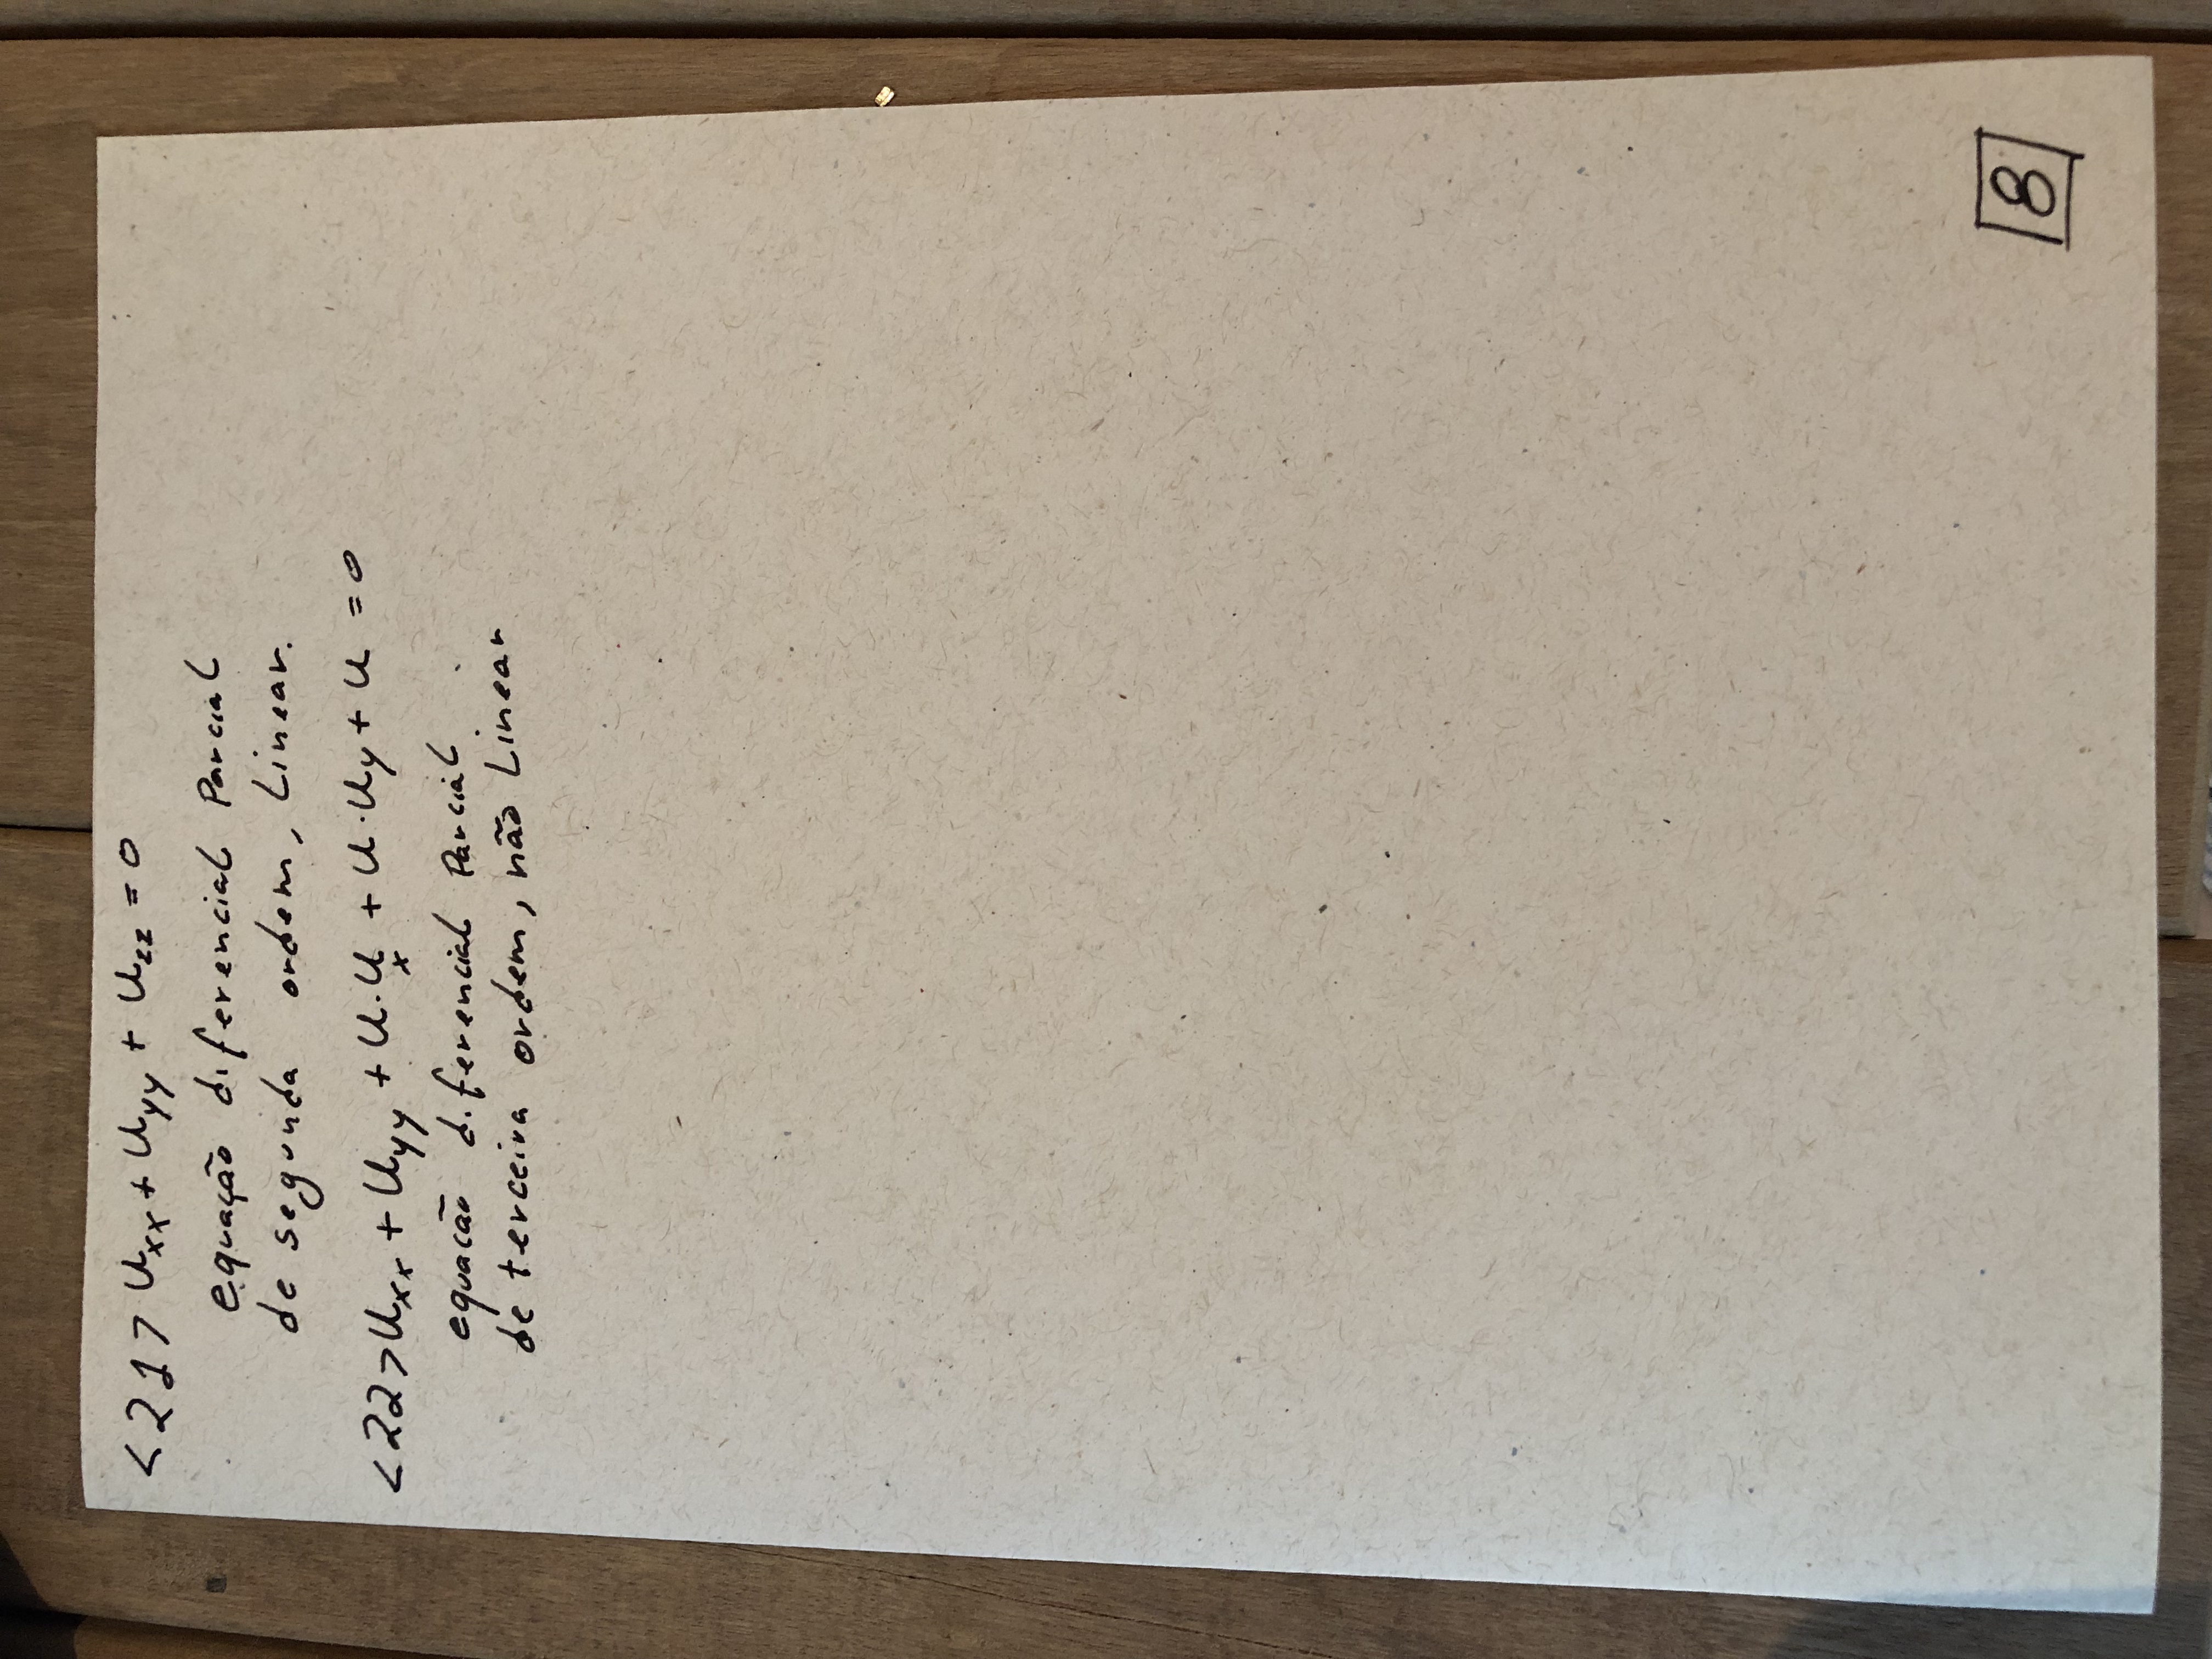 <21> Uxx + Uyy + Uzz = 0
equação diferencial Parcial
de segunda ordem, Linear.
<22> Uxx + Uyy + U·Ux + U·Uy + U = 0
equacão diferencial Parcial
de terceira ordem, não Linear
8